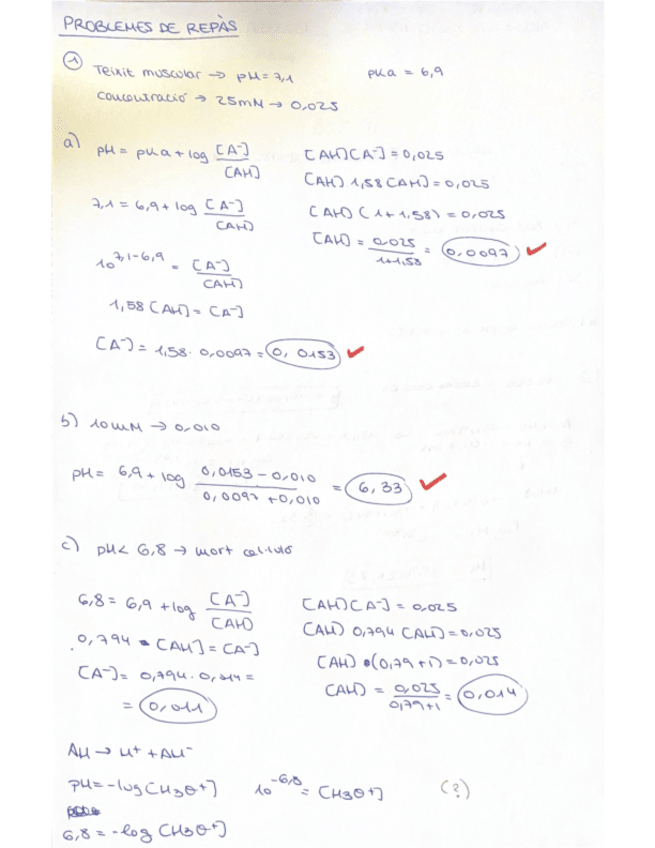 PROBLEMES DE REPÀS
1
Teixit muscular → pH = 7,1 pKa = 6,9
Concentració → 25mM → 0,025
a) pH = pKa + log [A-]/[AH]
7,1 = 6,9 + log [A-]/[AH]
10^7,1-6,9 = [A-]/[AH]
1,58 [AH] = [A-]
[A-] = 1,58 · 0,0097 = 0,0153 ✓
[AH][A-] = 0,025
[AH] 1,58 [AH] = 0,025
[AH] (1+1,58) = 0,025
[AH] = 0,025/1+1,58 = 0,0097 ✓
b) 10mM → 0,010
pH = 6,9 + log 0,0153 - 0,010/0,0097 + 0,010 = 6,33 ✓
c) pH < 6,8 → mort cel·lula
6,8 = 6,9 + log [A-]/[AH]
0,794 · [AH] = [A-]
[A-] = 0,794 · 0,014 =
= 0,011
[AH][A-] = 0,025
[AH] 0,794 [AH] = 0,025
[AH] · (0,79+1) = 0,025
[AH] = 0,025/0,79+1 = 0,014
AH → H+ + AH-
pH = -log [H3O+] 10^-6,8 = [H3O+] (?)
6,8 = -log [H3O+]